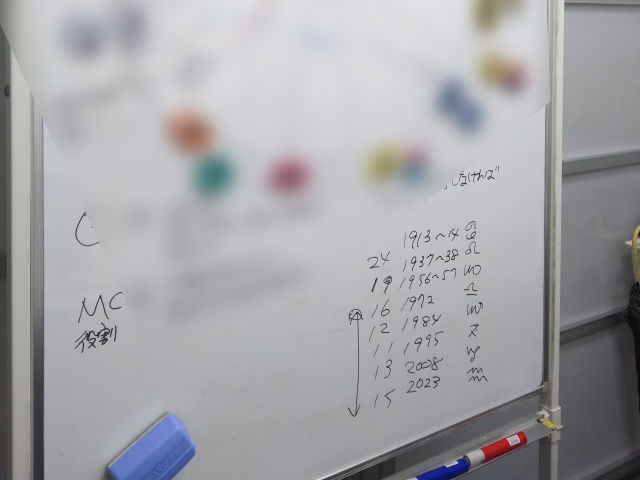 しなければ"
1913~14 ♋
24
1937~38 ♌
19
1956~57 ♍
16
1972 ♎
12
1984 ♏
11
1995 ♐
13
2008 ♑
15
2023 ♒
MC
役割